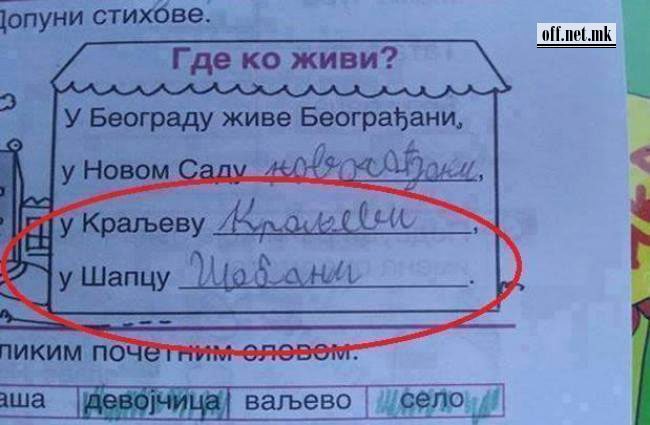 Допуни стихове.
off.net.mk
Где ко живи?
У Београду живе Београђани,
у Новом Саду новосађани,
у Краљеву Краљеви,
у Шапцу Шабани.
ликим почетним словом.
аша девојчица ваљево село